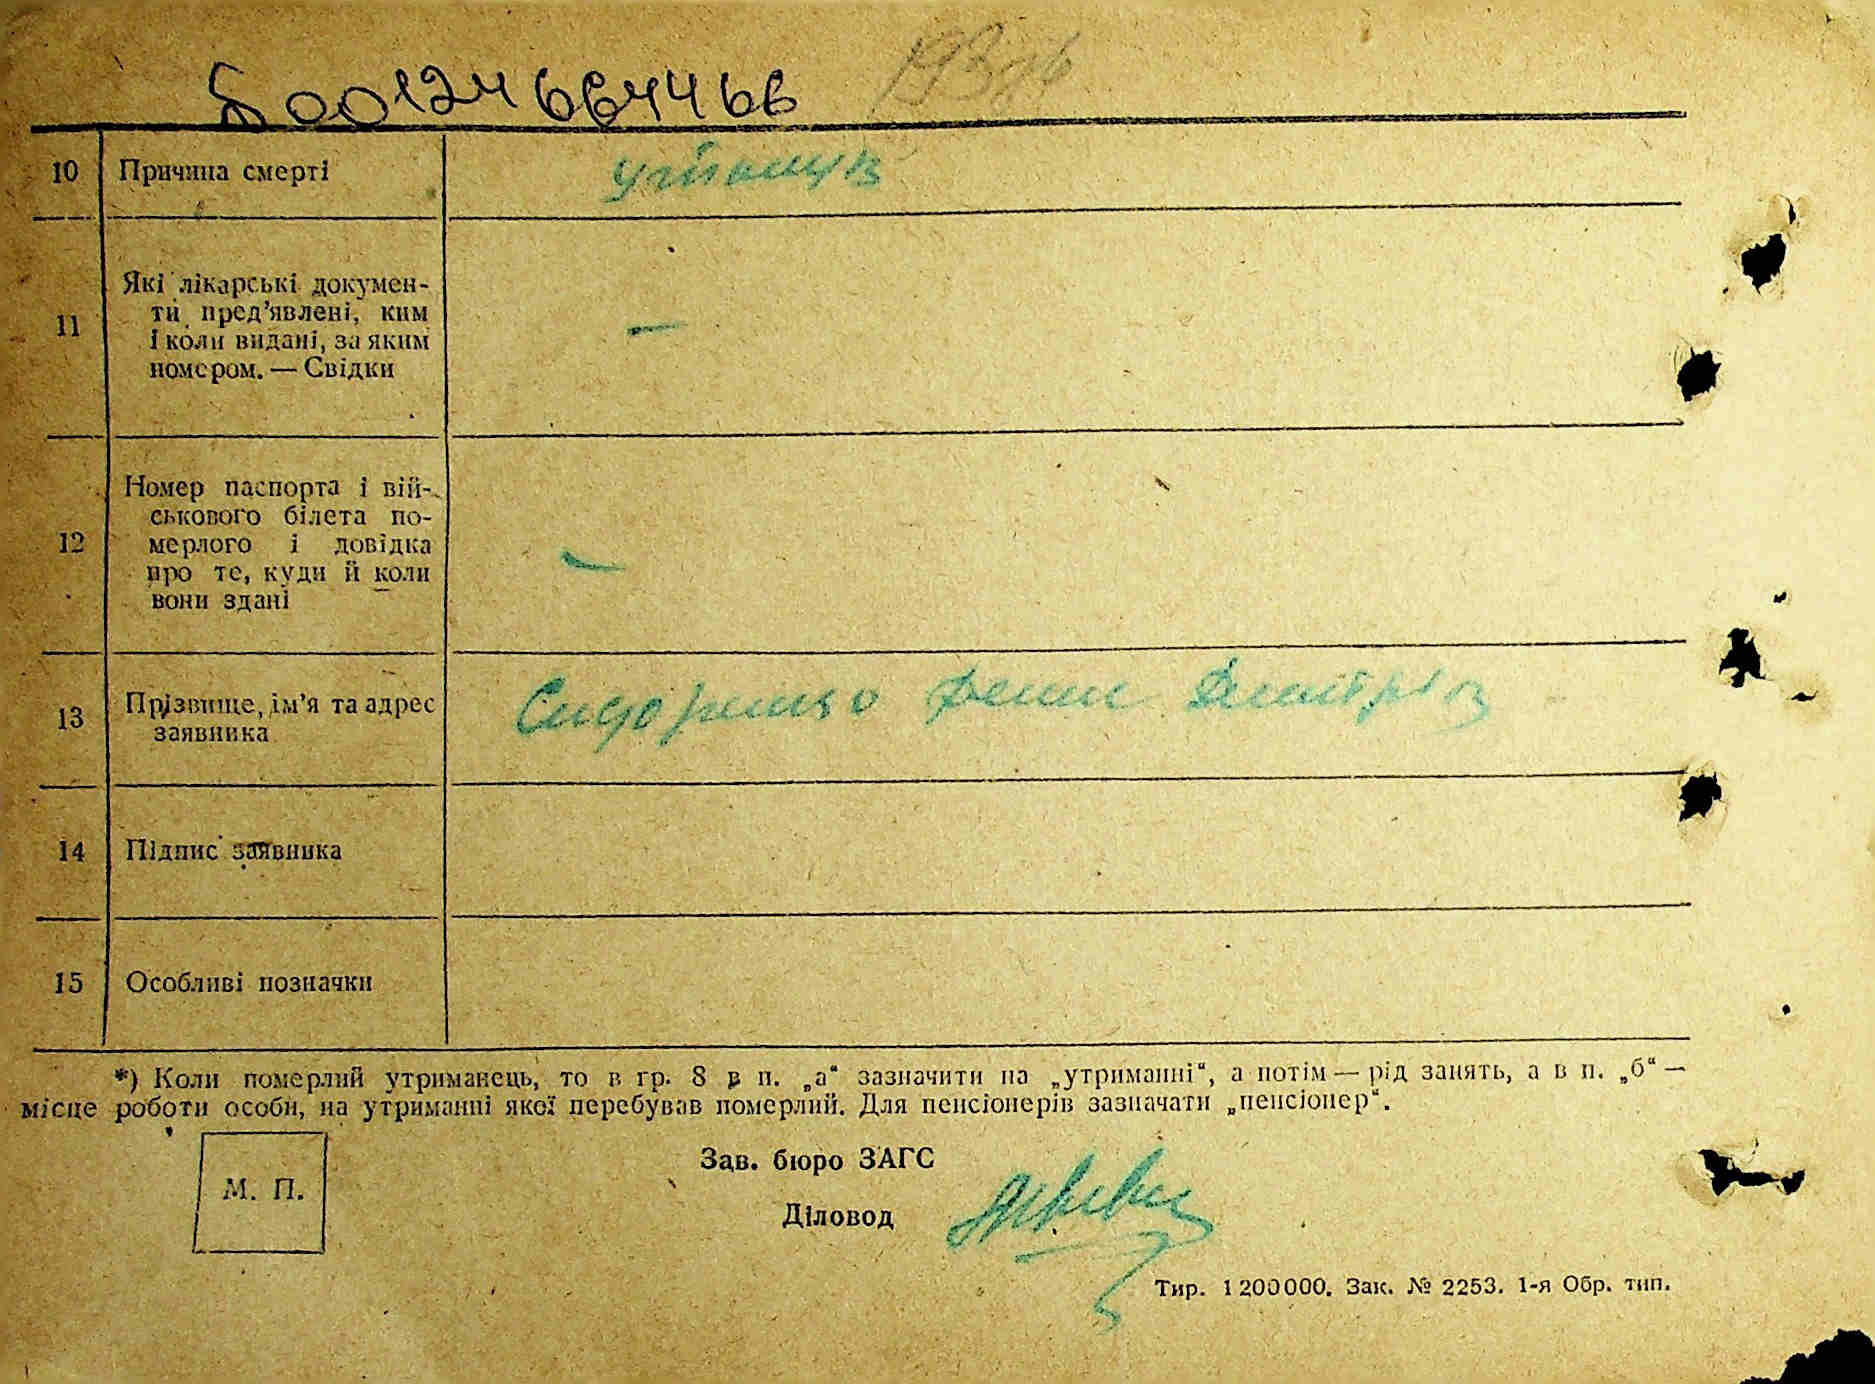 00124664466
10 Причина смерті
11 Які лікарські докумен-
ти пред’явлені, ким
і коли видані, за яким
номером. — Свідки —
12 Номер паспорта і вій-
ськового білета по-
мерлого і довідка
про те, куди й коли
вони здані —
13 Прізвище, ім’я та адрес
заявника Сидоренко Денис Дмитрів
14 Підпис заявника
15 Особливі позначки
*) Коли померлий утриманець, то в гр. 8 в п. „а“ зазначити на „утриманні“, а потім — рід занять, а в п. „б“ —
місце роботи особи, на утриманні якої перебував померлий. Для пенсіонерів зазначати „пенсіонер“.
М. П.
Зав. бюро ЗАГС
Діловод
Тир. 1200000. Зак. № 2253. 1-я Обр. тип.